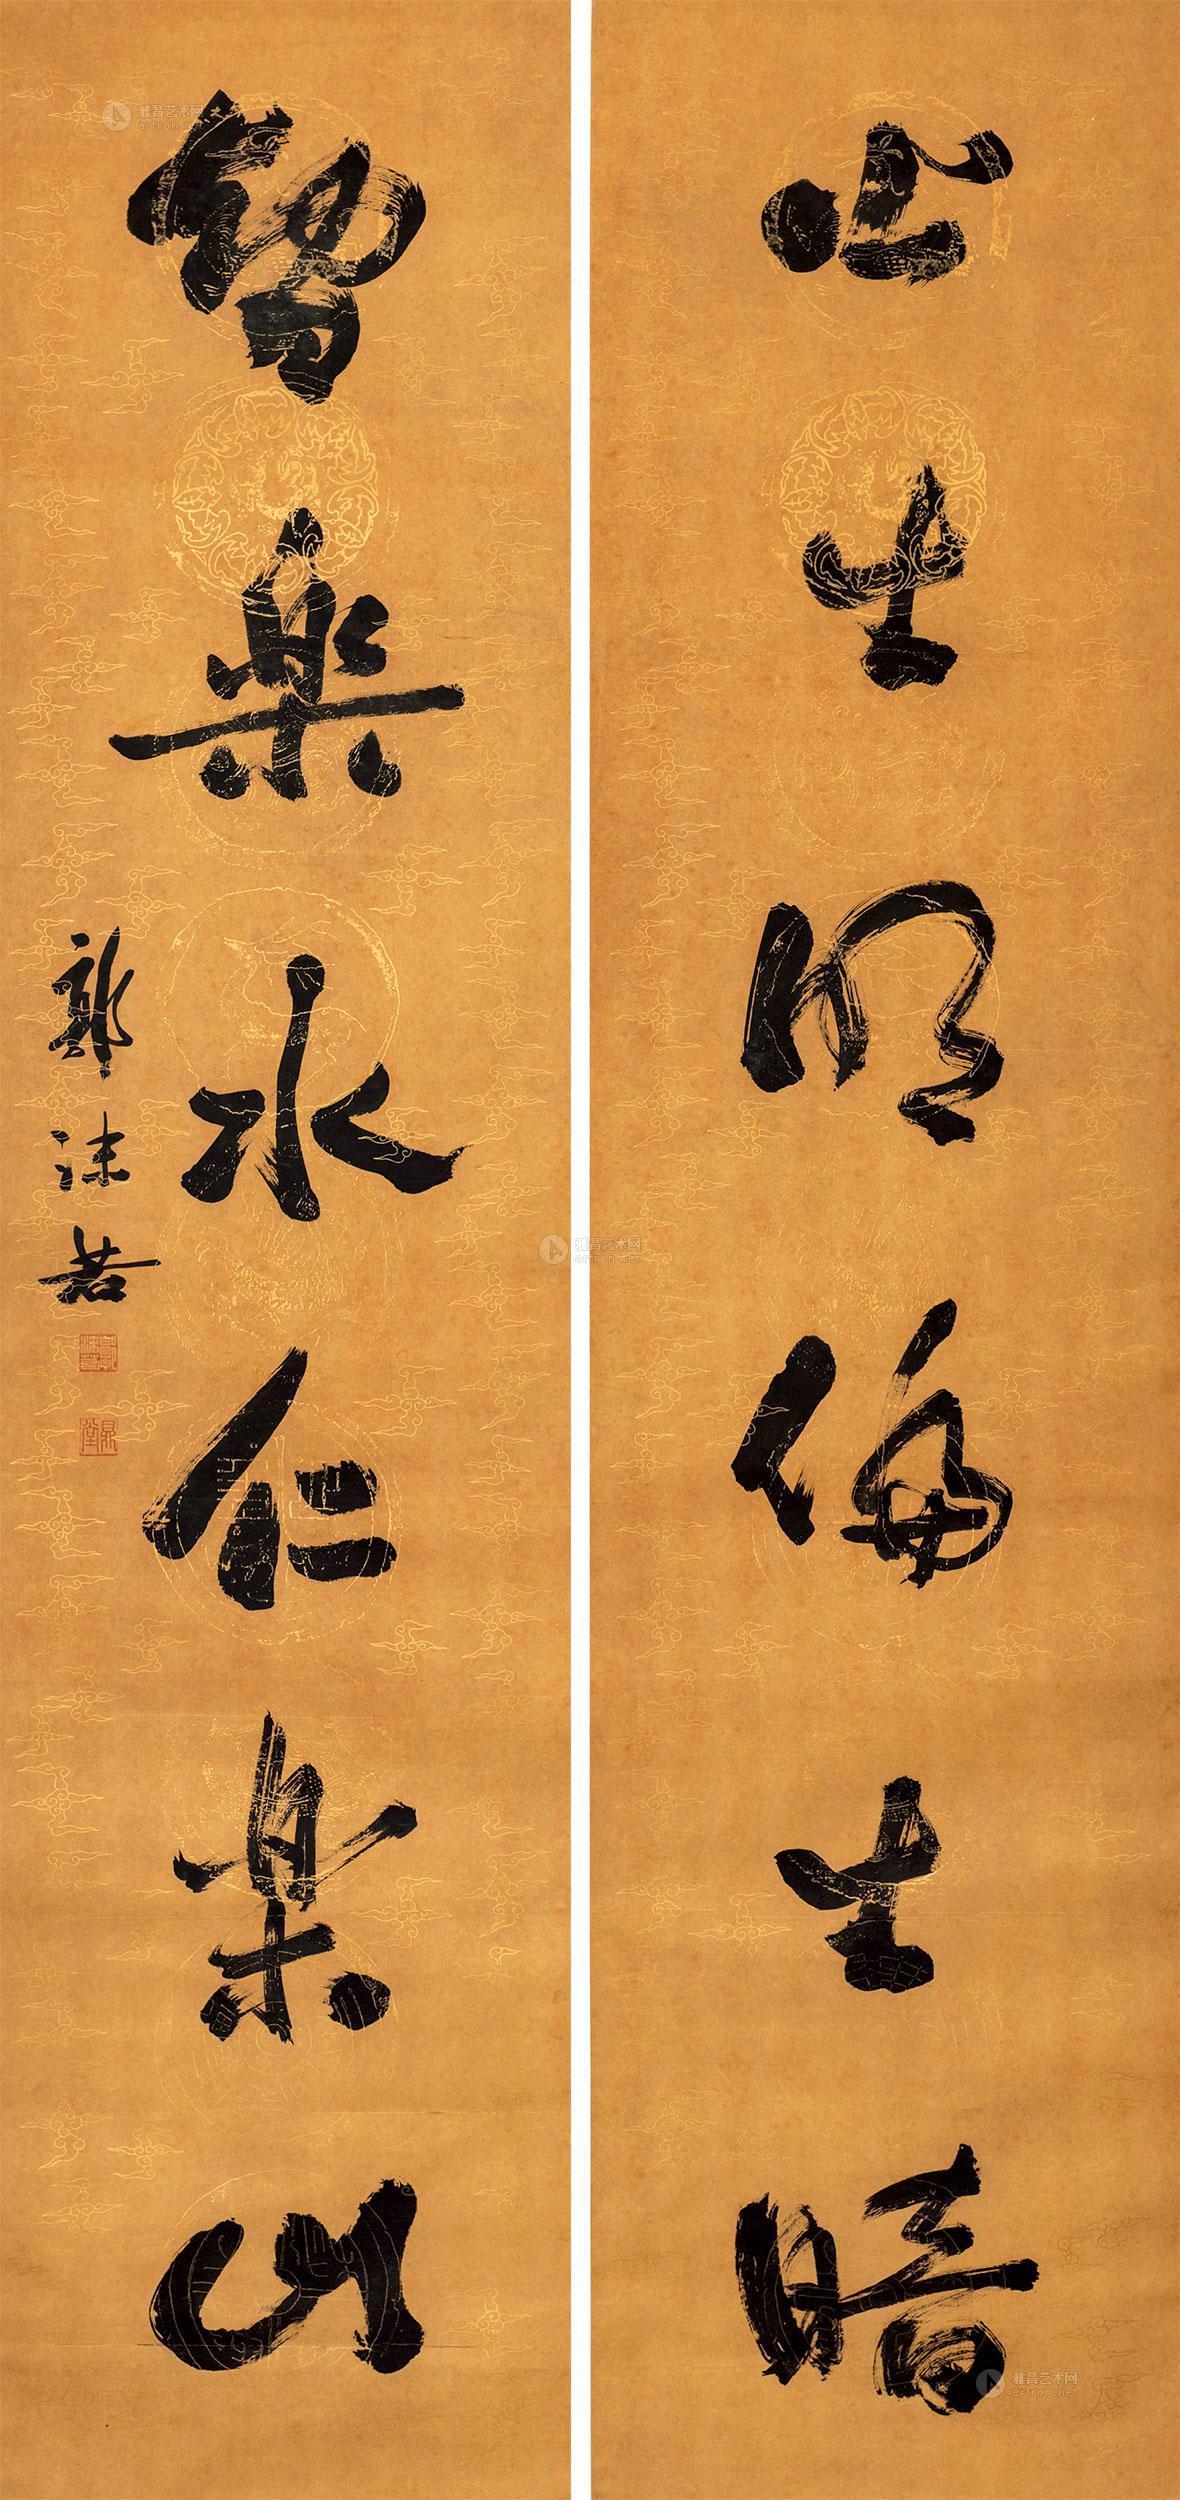 公生明偏生暗
智樂水仁樂山
郭沫若
鼎堂
雅昌艺术网
artron.net
雅昌艺术网
artron.net
雅昌艺术网
artron.net